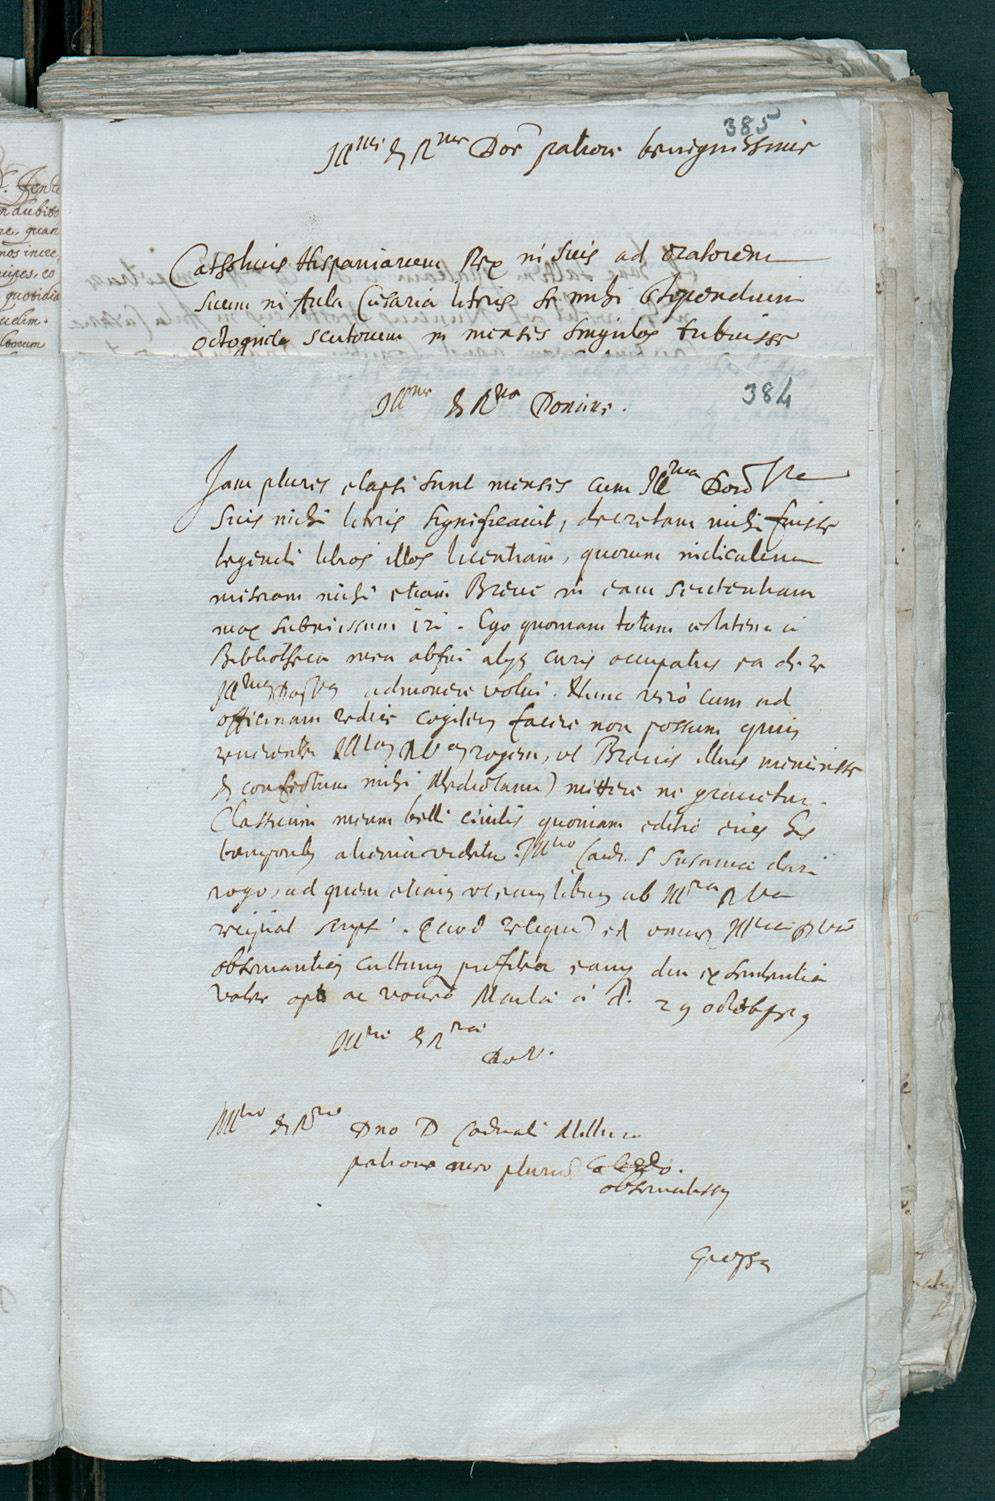 385
Ill^me & R^me Dne patrone benignissime
Catholicus Hispaniarum Rex in suis ad oratorem
suum in Aula Cæsarea litris se mihi stipendium
octoginta scutorum in menses singulos tribuisse
384
Ill^me & R^me Domine.
Jam plures elapsi sunt menses cum Ill^ma Do^o V^ra
suis mihi litris significavit, decretam mihi fuisse
legendi libros illos licentiam, quorum indiculum
miseram mihi etiam Breve in eam sententiam
mox submissum iri. Ego quoniam totum
Bibliotheca mea abfui alijs curis occupatus ea de re
Ill^mam admonere volui. Nunc vero cum ad
officinam redire cogitem facere non possum quin
reverenter Ill^am R^am rogem, ut Brevis illius meminisse
& confectum mihi Mediolanum mittere ne gravetur.
Classicum meum belli civilis quoniam editio eius his
temporibus aliena videtur Ill^mo Card. S Susannæ dari
rogo, ad quem etiam ut eum librum ab Ill^ma R^ma
recipiat scripsi. Quod reliquum est
observantiæ cultum profiteor eam diu ex sententia
valere opto ac voveo 29 octob
Ill^mæ & R^mæ
Do. V.
Ill^mo & R^mo Dno D Cardinali
patrono meo plurimum colendo.
observantissimus